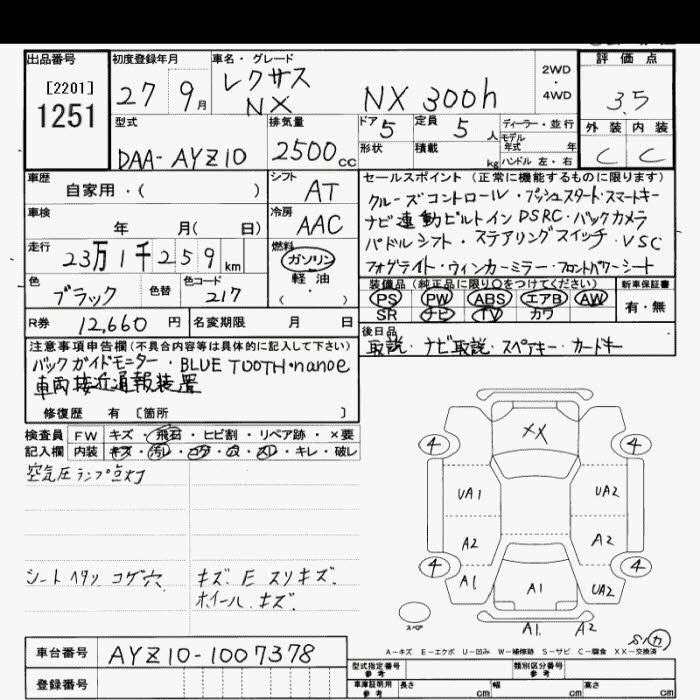 出品番号
[2201]
1251
初度登録年月
27 9月
車名・グレード
レクサス
NX
NX 300h
2WD
・
4WD
評価点
3.5
外装 内装
C C
型式
DAA-AYZ10
排気量
2500cc
ドア 5
定員 5人
ディーラー・並行
モデル年式 年
形状
積載 kg
ハンドル 左・右
車歴
自家用・( )
シフト
AT
車検
年 月( 日)
冷房
AAC
走行
23万1千259km
燃料
ガソリン
軽油
・( )
色
ブラック
色替
色コード
217
R券 12,660円
名変期限 月 日
セールスポイント(正常に機能するものに限ります)
クルーズコントロール・プッシュスタート・スマートキー
ナビ連動ビルトインDSRC・バックカメラ
パドルシフト・ステアリングスイッチ・VSC
フォグライト・ウィンカーミラー・フロントパワーシート
装備品(純正品に限り○をつけてください)
PS PW ABS エアB AW
SR ナビ TV カワ
新車保証書
有・無
後日品
取説・ナビ取説・スペアキー・カードキー
注意事項申告欄(不具合内容等は具体的に記入して下さい)
バックガイドモニター・BLUE TOOTH・nanoe
車両接近通報装置
修復歴 有 [箇所 ]
検査員 FW キズ・飛石・ヒビ割・リペア跡・×要
記入欄 内装 キズ・汚レ・コゲ・穴・スレ・キレ・破レ
空気圧ランプ点灯
シートヘタリ コゲ穴
キズ、E スリキズ、
ホイール キズ、
XX
4 4
UA1 UA2
A2 A2
4 4
A1 A1 UA2
スペア
A1. A2
A-キズ E-エクボ U-凹み W-補修跡 S-サビ C-腐食 XX-交換済
車台番号 AYZ10-1007378
登録番号
型式指定番号 参考
類別区分番号 参考
車庫証明用 参考
長さ cm
幅 cm
高さ cm